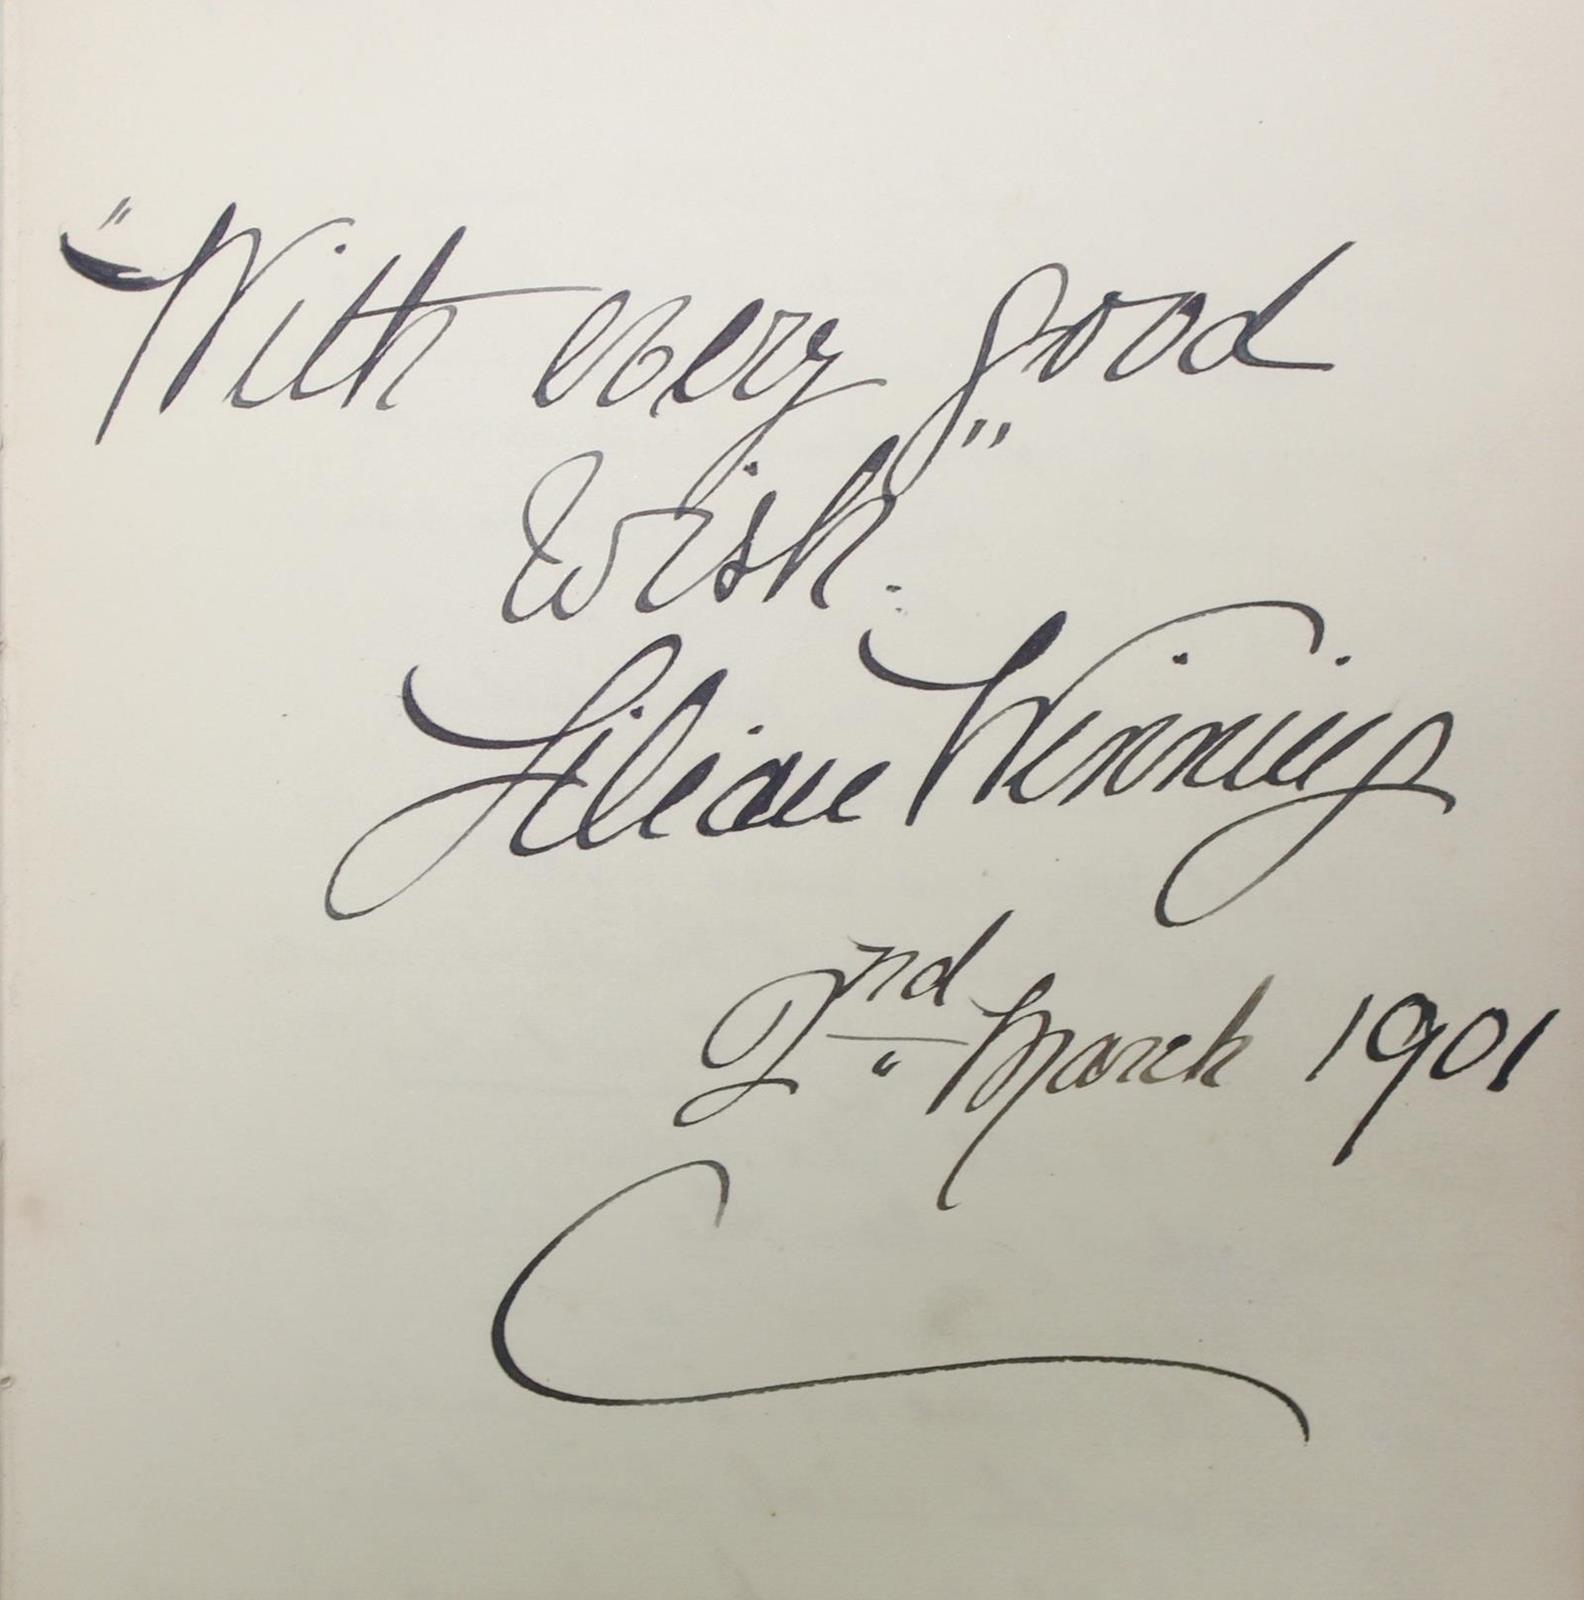 "With every good
wish."
Lilian Winning
2nd March 1901